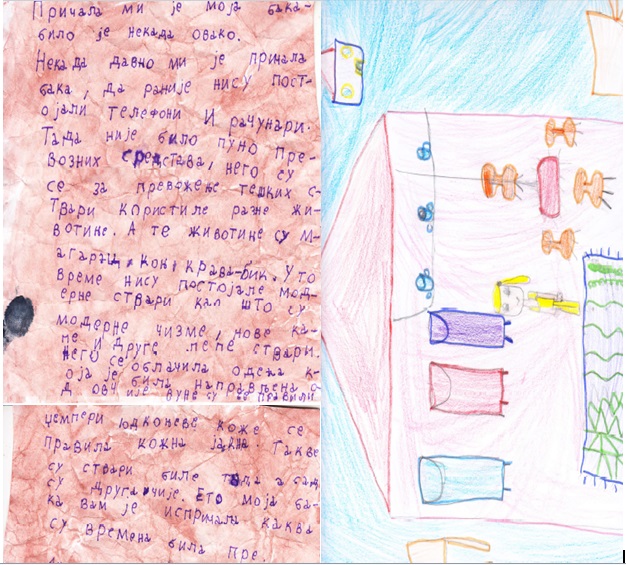 Причала ми је моја бака-
било је некада овако.
Некада давно ми је причала
бака, да раније нису пост-
ојали телефони и рачунари.
Тада није било пуно пре-
возних средстава, него су
се за превожење тешких с-
твари користиле разне жи-
вотиње. А те животиње су м-
агарац, коњ, крава-бик. У то
време нису постојале мод-
ерне ствари као што су
модерне чизме, нове ка-
пе и друге лепе ствари.
него се облачила одећа к-
оја је била направљена о-
д овчије вуне су се правили
џемпери и од коњеве коже се
правила кожна јакна. Такве
су ствари биле тада а сад
су другачије. Ето моја ба-
ка вам је испричала каква
су времена била пре.